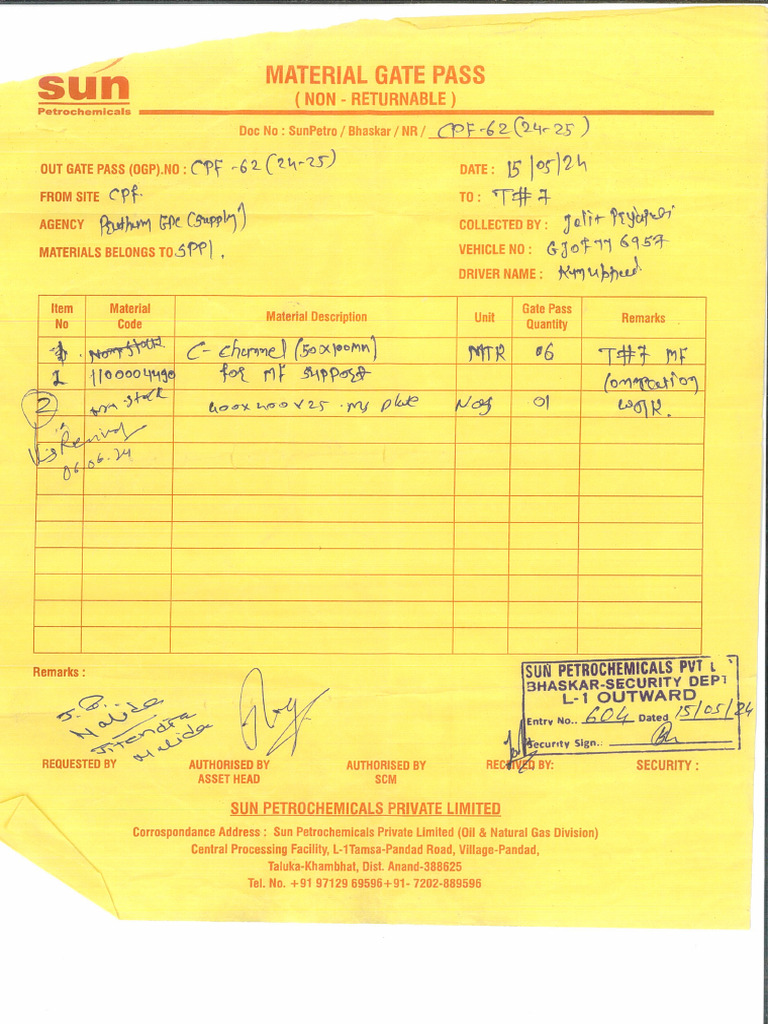 sun
Petrochemicals
MATERIAL GATE PASS
( NON - RETURNABLE )
Doc No : SunPetro / Bhaskar / NR / CPF-62 (24-25)
OUT GATE PASS (OGP).NO : CPF -62 (24-25)
DATE : 15/05/24
FROM SITE CPF.
TO : T#7
AGENCY (Supply)
COLLECTED BY :
MATERIALS BELONGS TO SPPL.
VEHICLE NO : GJ07YY 6957
DRIVER NAME :
Item No Material Code Material Description Unit Gate Pass Quantity Remarks
1 Non stock C- Channel (50x100MM) MTR 06 T#7 MF
1 1100004490 for MF support Connection
2 Non stock 400x400x25 MS plate Nos 01 work.
06.06.24
Remarks :
J.B.
Malida
Jitendra
Malida
SUN PETROCHEMICALS PVT L
BHASKAR-SECURITY DEPT
L-1 OUTWARD
Entry No.. 604 Dated 15/05/24
Security Sign..
REQUESTED BY
AUTHORISED BY ASSET HEAD
AUTHORISED BY SCM
RECEIVED BY:
SECURITY :
SUN PETROCHEMICALS PRIVATE LIMITED
Corrospondance Address : Sun Petrochemicals Private Limited (Oil & Natural Gas Division)
Central Processing Facility, L-1Tamsa-Pandad Road, Village-Pandad,
Taluka-Khambhat, Dist. Anand-388625
Tel. No. +91 97129 69596+91- 7202-889596